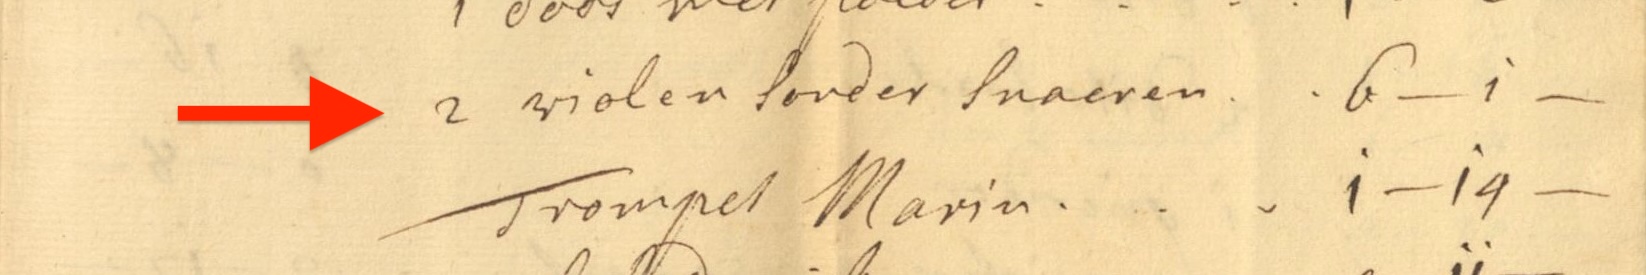 1 doos met poeder . . . . 1
2 violen sonder snaeren . . 6 — 1 —
Trompet Marin . . . 1 — 19 —